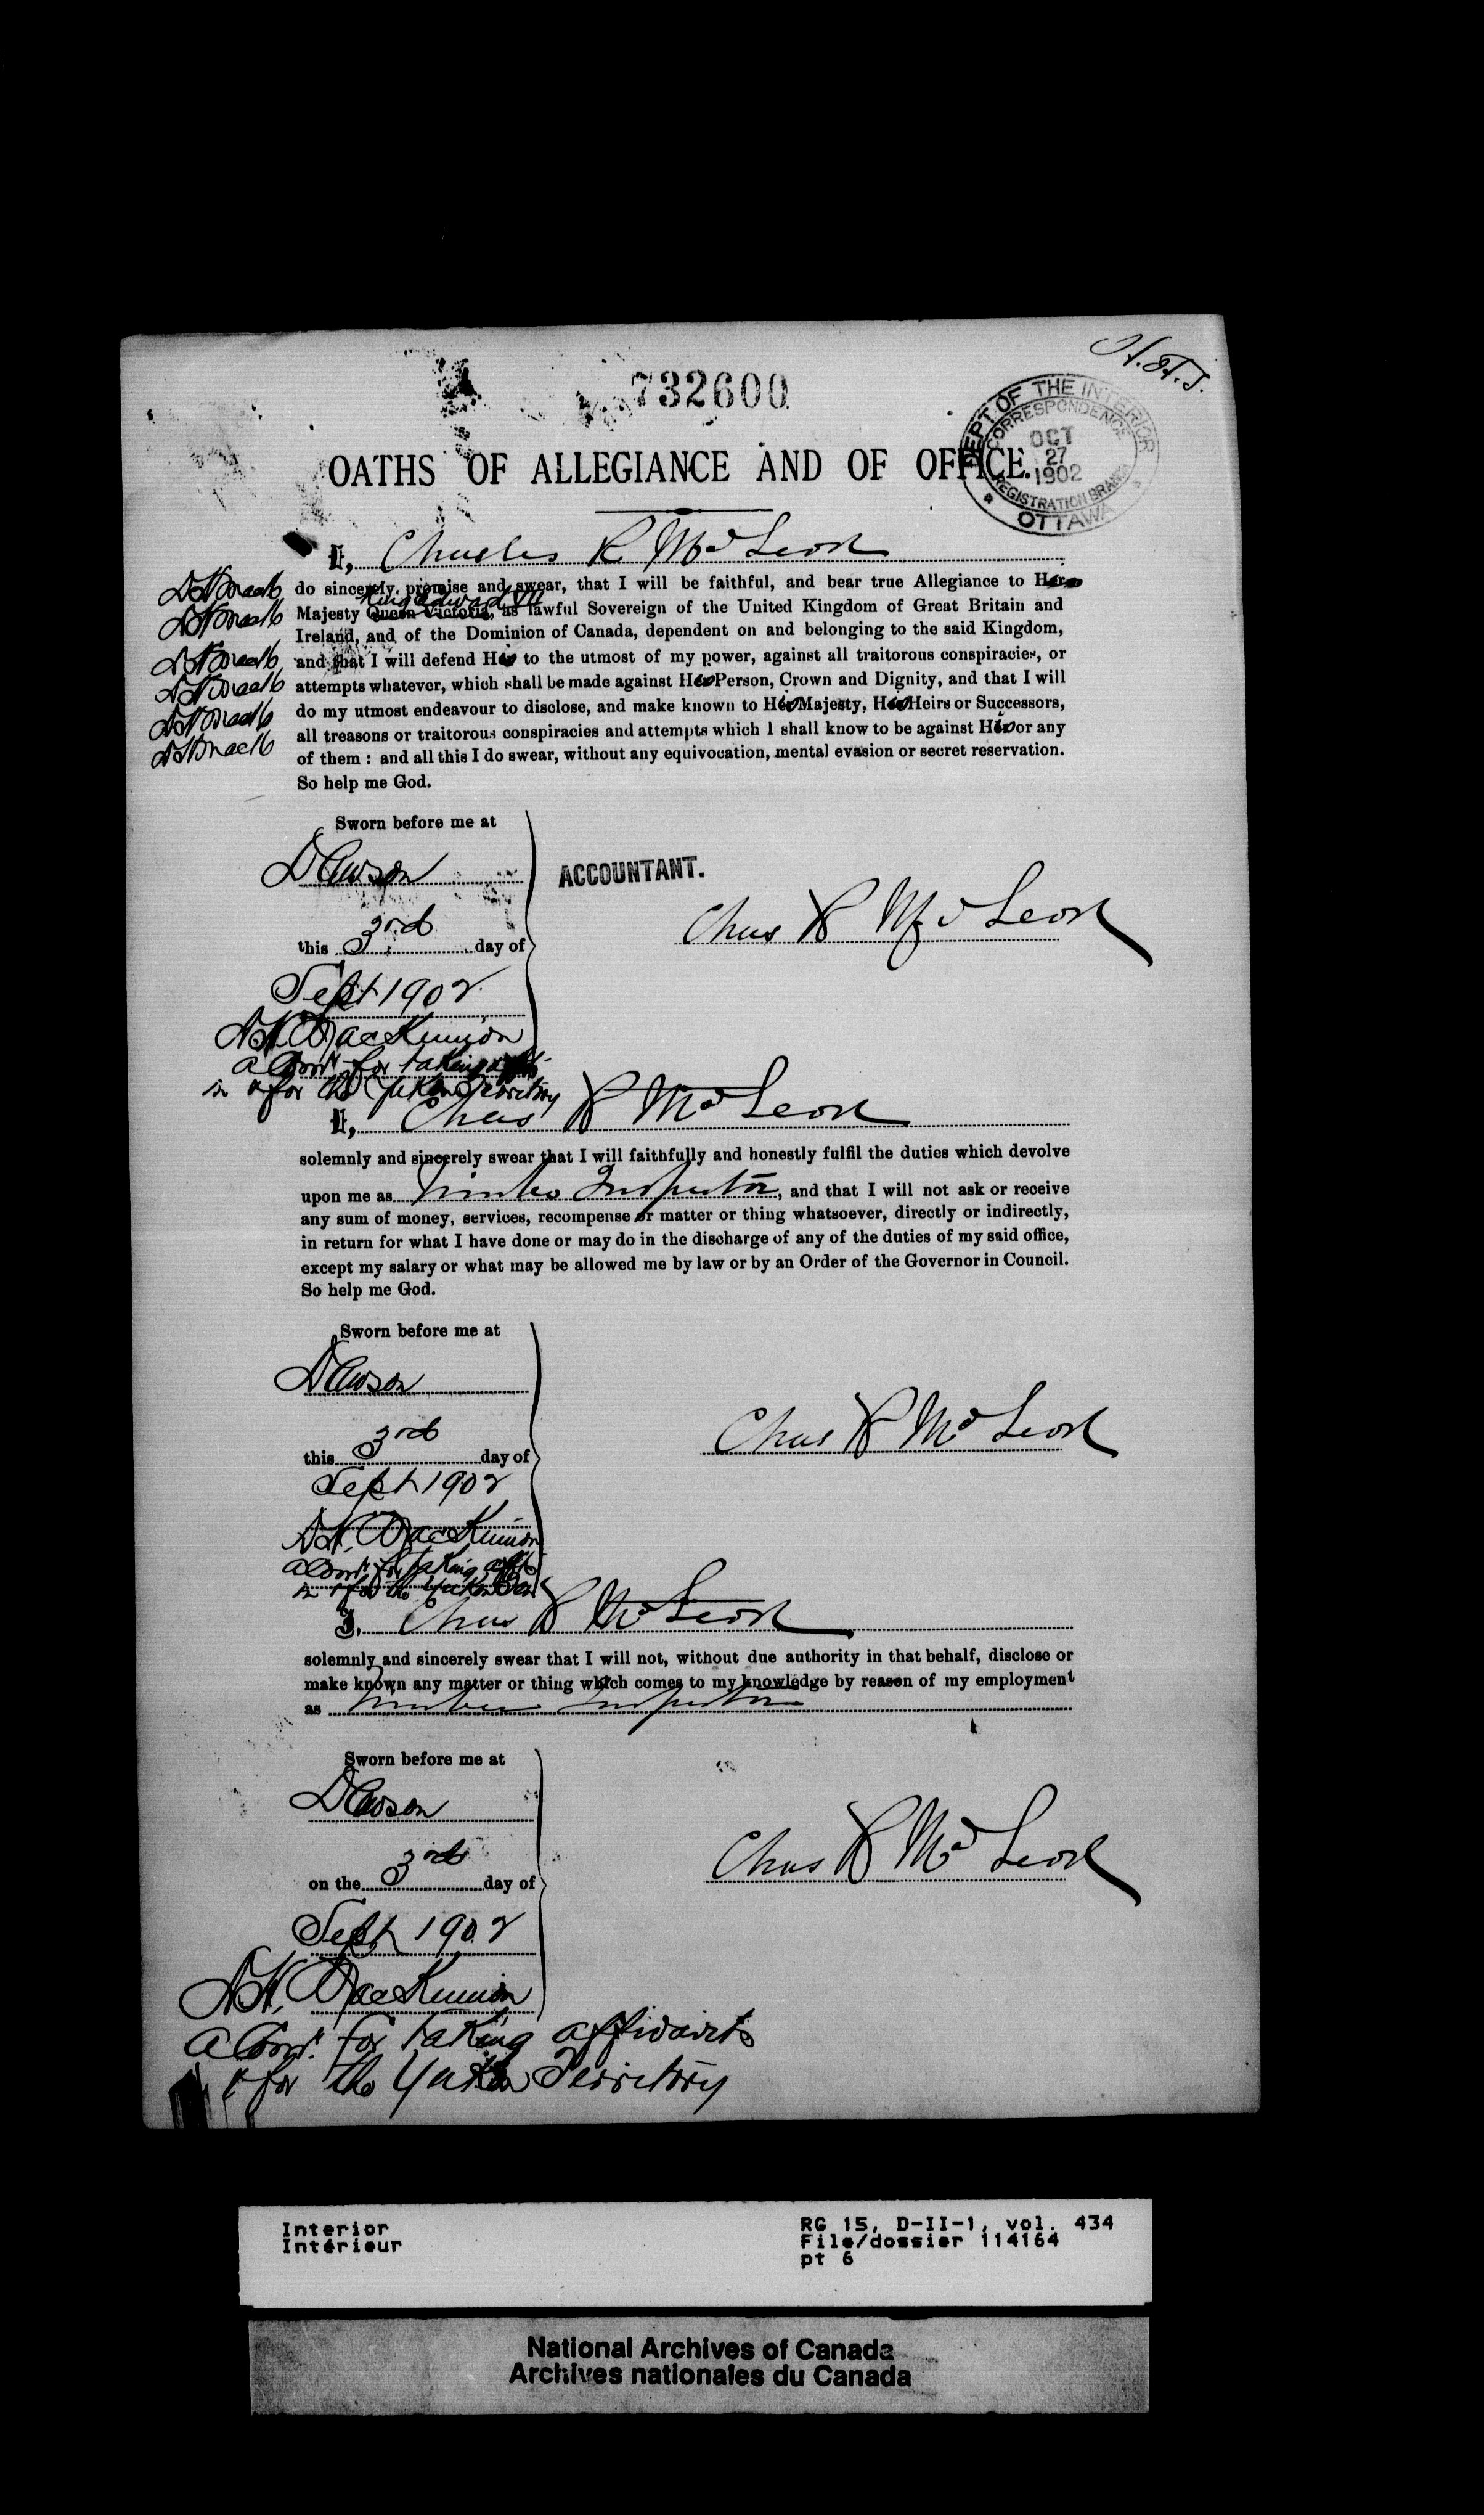 H.H.J.
732600
DEPT OF THE INTERIOR
CORRESPONDENCE
OCT
27
1902
REGISTRATION BRANCH
OTTAWA
OATHS OF ALLEGIANCE AND OF OFFICE.
I, Charles R McLeod
do sincerely promise and swear, that I will be faithful, and bear true Allegiance to His
King Edward VII
Majesty Queen Victoria, as lawful Sovereign of the United Kingdom of Great Britain and
Ireland, and of the Dominion of Canada, dependent on and belonging to the said Kingdom,
and that I will defend Him to the utmost of my power, against all traitorous conspiracies, or
attempts whatever, which shall be made against His Person, Crown and Dignity, and that I will
do my utmost endeavour to disclose, and make known to His Majesty, His Heirs or Successors,
all treasons or traitorous conspiracies and attempts which I shall know to be against Him or any
of them : and all this I do swear, without any equivocation, mental evasion or secret reservation.
So help me God.
Sworn before me at
Dawson
ACCOUNTANT.
this 3rd day of
Chas R McLeod
Sept 1902
a Comr for taking affts
in & for the Yukon Territory
I, Chas R McLeod
solemnly and sincerely swear that I will faithfully and honestly fulfil the duties which devolve
upon me as Timber Inspector, and that I will not ask or receive
any sum of money, services, recompense or matter or thing whatsoever, directly or indirectly,
in return for what I have done or may do in the discharge of any of the duties of my said office,
except my salary or what may be allowed me by law or by an Order of the Governor in Council.
So help me God.
Sworn before me at
Dawson
this 3rd day of
Chas R McLeod
Sept 1902
a Comr for taking affts
in & for the Yukon Ter
I, Chas R McLeod
solemnly and sincerely swear that I will not, without due authority in that behalf, disclose or
make known any matter or thing which comes to my knowledge by reason of my employment
as Timber Inspector
Sworn before me at
Dawson
on the 3rd day of
Chas R McLeod
Sept 1902
a Comr for taking affidavits
& for the Yukon Territory
Interior
Intérieur
RG 15, D-II-1, vol. 434
File/dossier 114164
pt 6
National Archives of Canada
Archives nationales du Canada